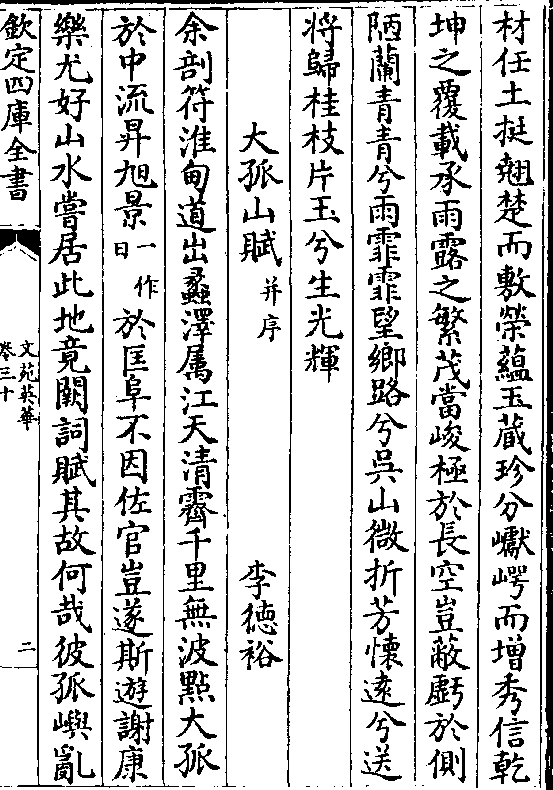 材任土挺翹楚而敷榮蘊玉蔵珍分巘崿而增秀信乾
坤之覆載承雨露之繁茂當峻極於長空豈蔽虧於側
陋蘭青青兮雨霏霏望鄉路兮吳山微折芳懷逺兮送
將歸桂枝片玉兮生光輝
大孤山賦并序 李徳裕
余剖符淮甸道出蠡澤属江天清霽千里無波點大孤
於中流昇旭景一作日於匡阜不因佐官豈遂斯遊謝康
樂尤好山水嘗居此地竟闕詞賦其故何哉彼孤嶼亂
欽定四庫全書
文苑英華
卷三十
二